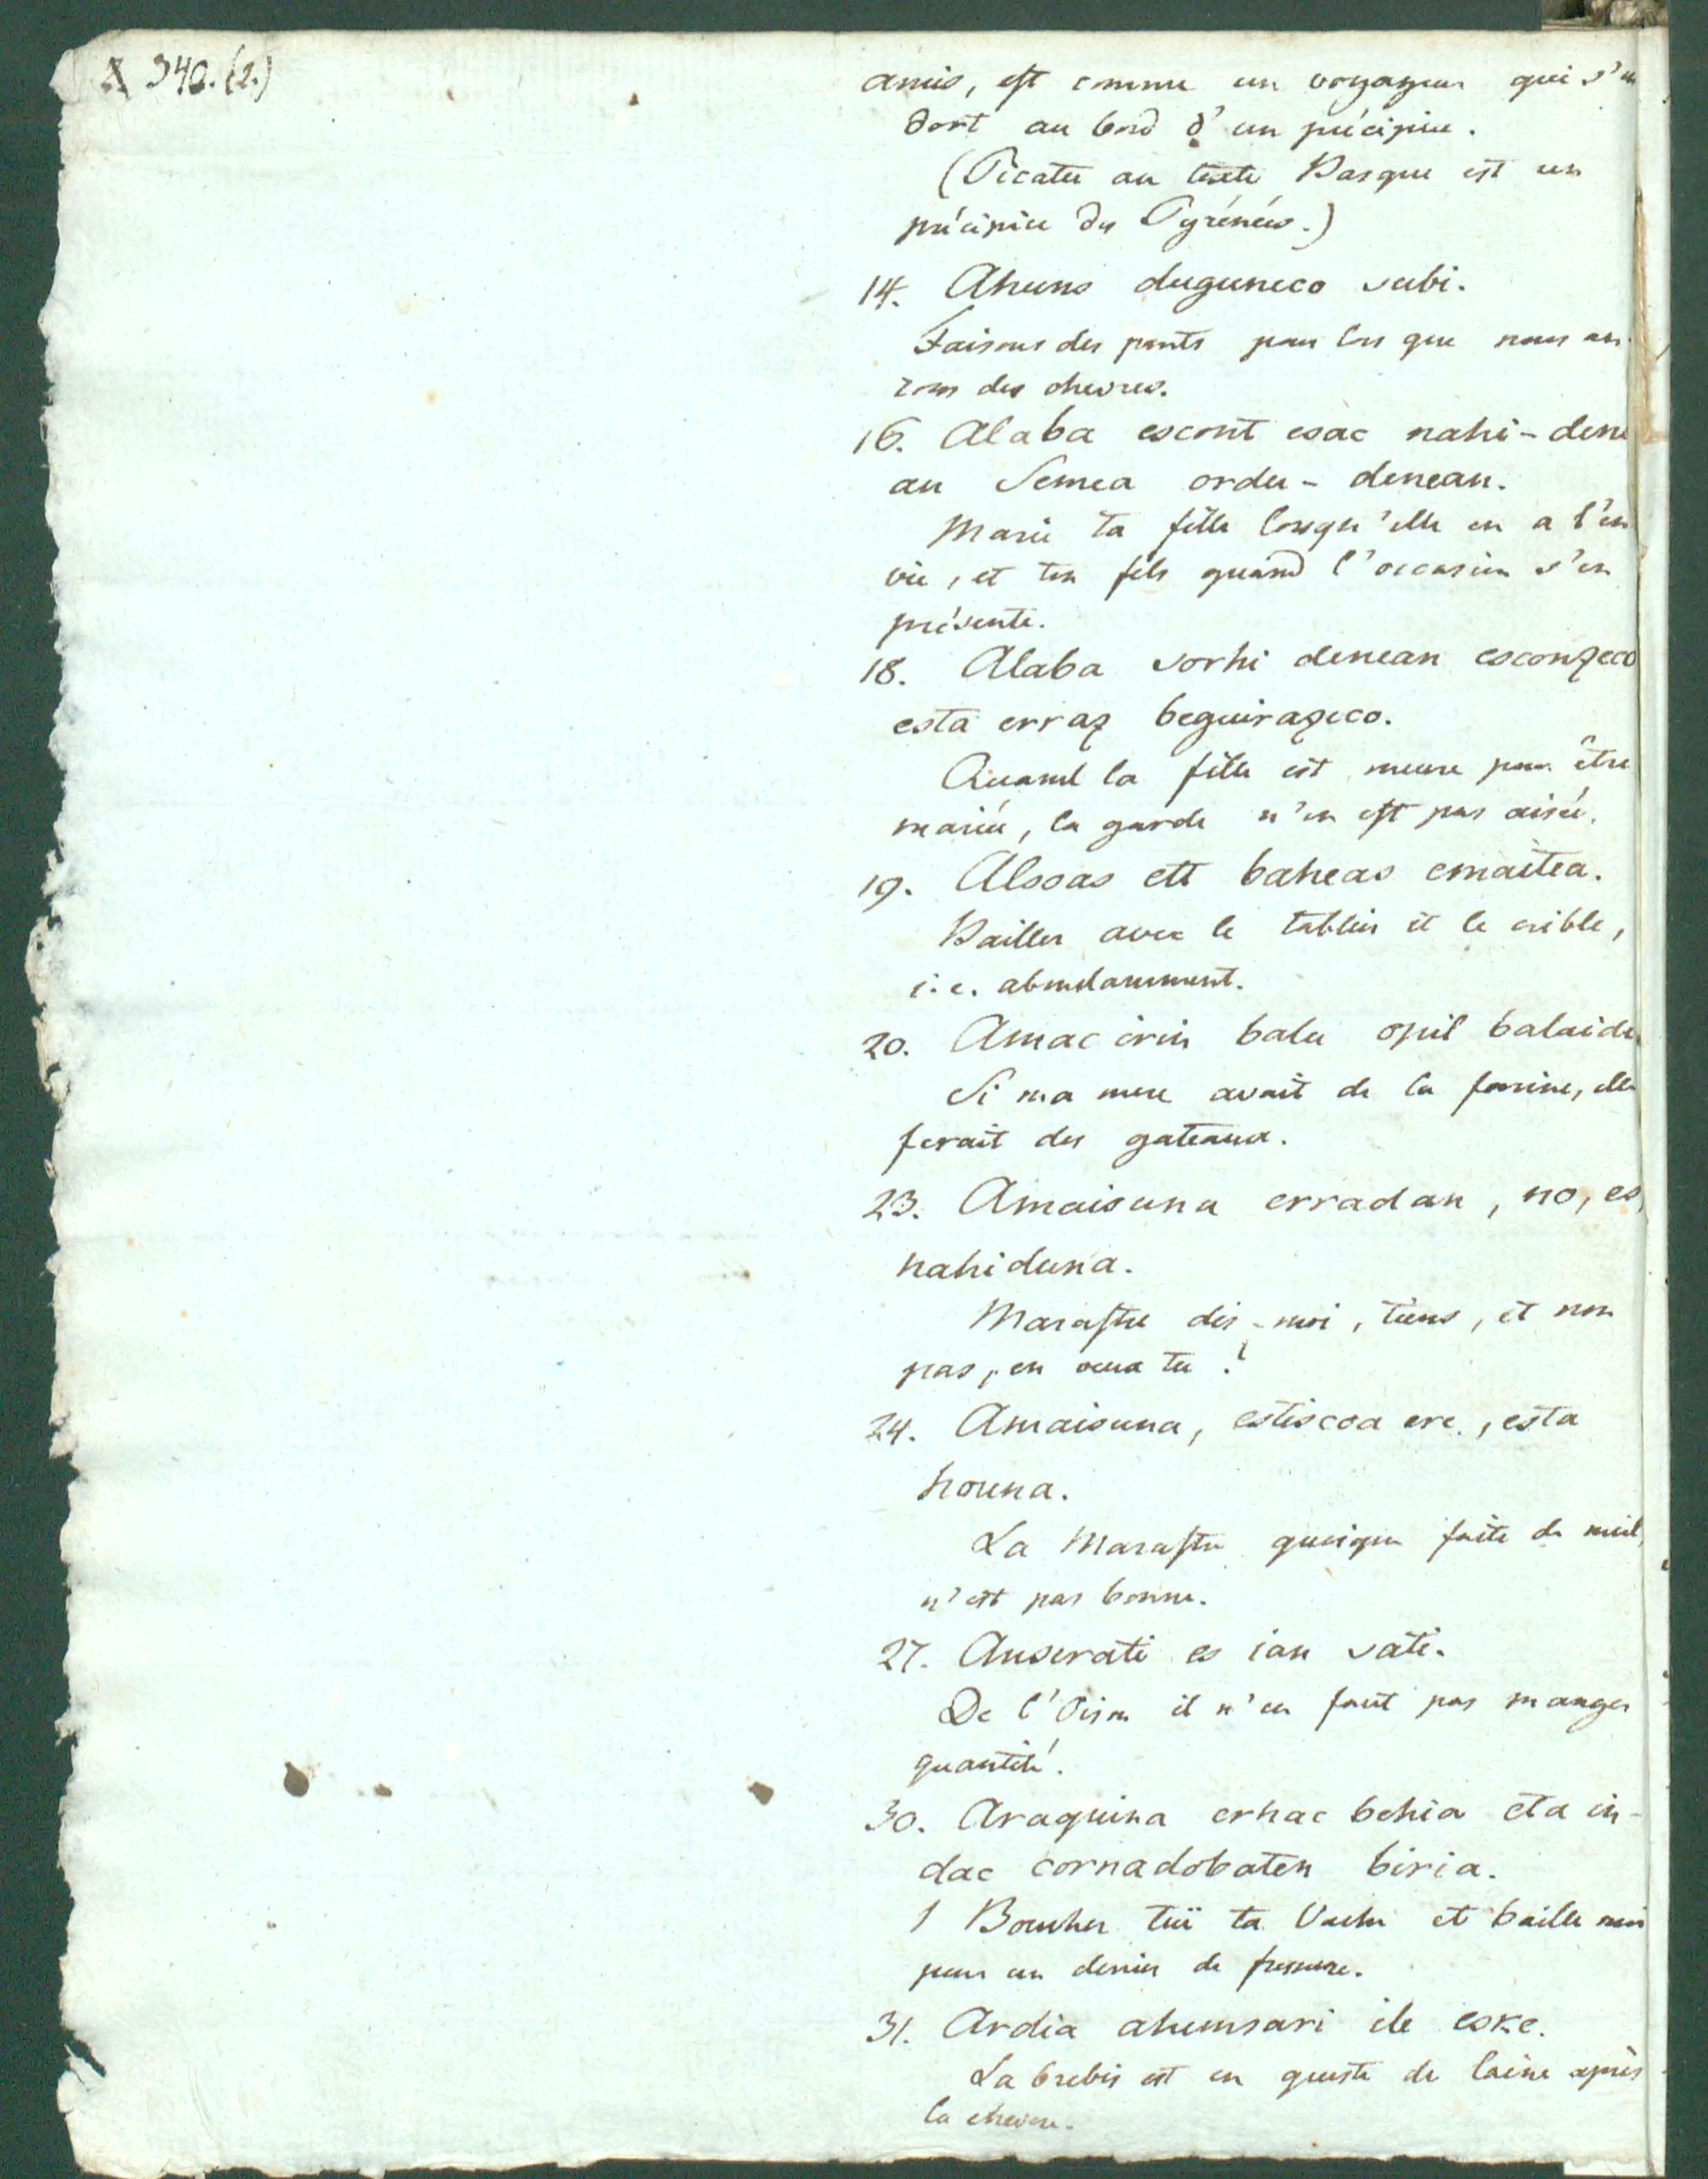 A 340. (2.)
amis, est comme un voyageur qui s'en
dort au bord d'un précipice.
(Picatu au texte Basque est un
précipice des Pyrénées.)
14. Ahuns duguneco subi.
Faisons des ponts pour lors que nous au-
rons des chevres.
16. Alaba escont esac nahi-dene
an Semea ordu-denean.
Marie ta fille lorsqu'elle en a l'en
vie, et ton fils quand l'occasion s'en
présente.
18. Alaba sorhi denean esconzeco
esta erraz beguirazeco.
Quand la fille est meure pour être
mariée, la garde n'en est pas aisée.
19. Alsoas ett baheas emaitea.
Bailler avec le tablier et le crible,
i.e. abondamment.
20. Amac irin balu opil balaidi
Si ma mere avait de la farine, elle
ferait des gateaux.
23. Amaisuna erradan, no, es,
nahiduna.
Marastre dis-moi, tiens, et non
pas, en veux tu?
24. Amaisuna, estiscoa ere, esta
houna.
La Marastre quoique faite de miel,
n'est pas bonne.
27. Anserati es ian sati.
De l'Oison il n'en faut pas manger
quantité.
30. Araquina erhac behia eta in-
dac cornadobaten biria.
Boucher tuë ta Vache et baille moi
pour un denier de fressure.
31. Ardia ahunsari ile eske.
La brebis est en queste de laine après
la chevre.